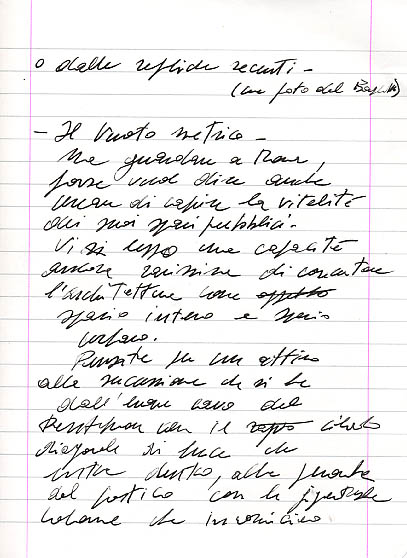 o dalle repliche recenti –
(une foto del
– Il Vuoto metrico –
Ma guardare a Roma,
forse vuol dire anche
cercare di capire la vitalità
dei suoi spazi pubblici.
Vi si legge una capacità
ancora rarissima di concatenare
l'architettura come
spazio interno e spazio
urbano.
Pensate per un attimo
alla successione che si ha
dall'enorme vano del
Pantheon con il
diagonale di luce che
entra dentro, alla
del portico con le gigantesche
colonne che incorniciano